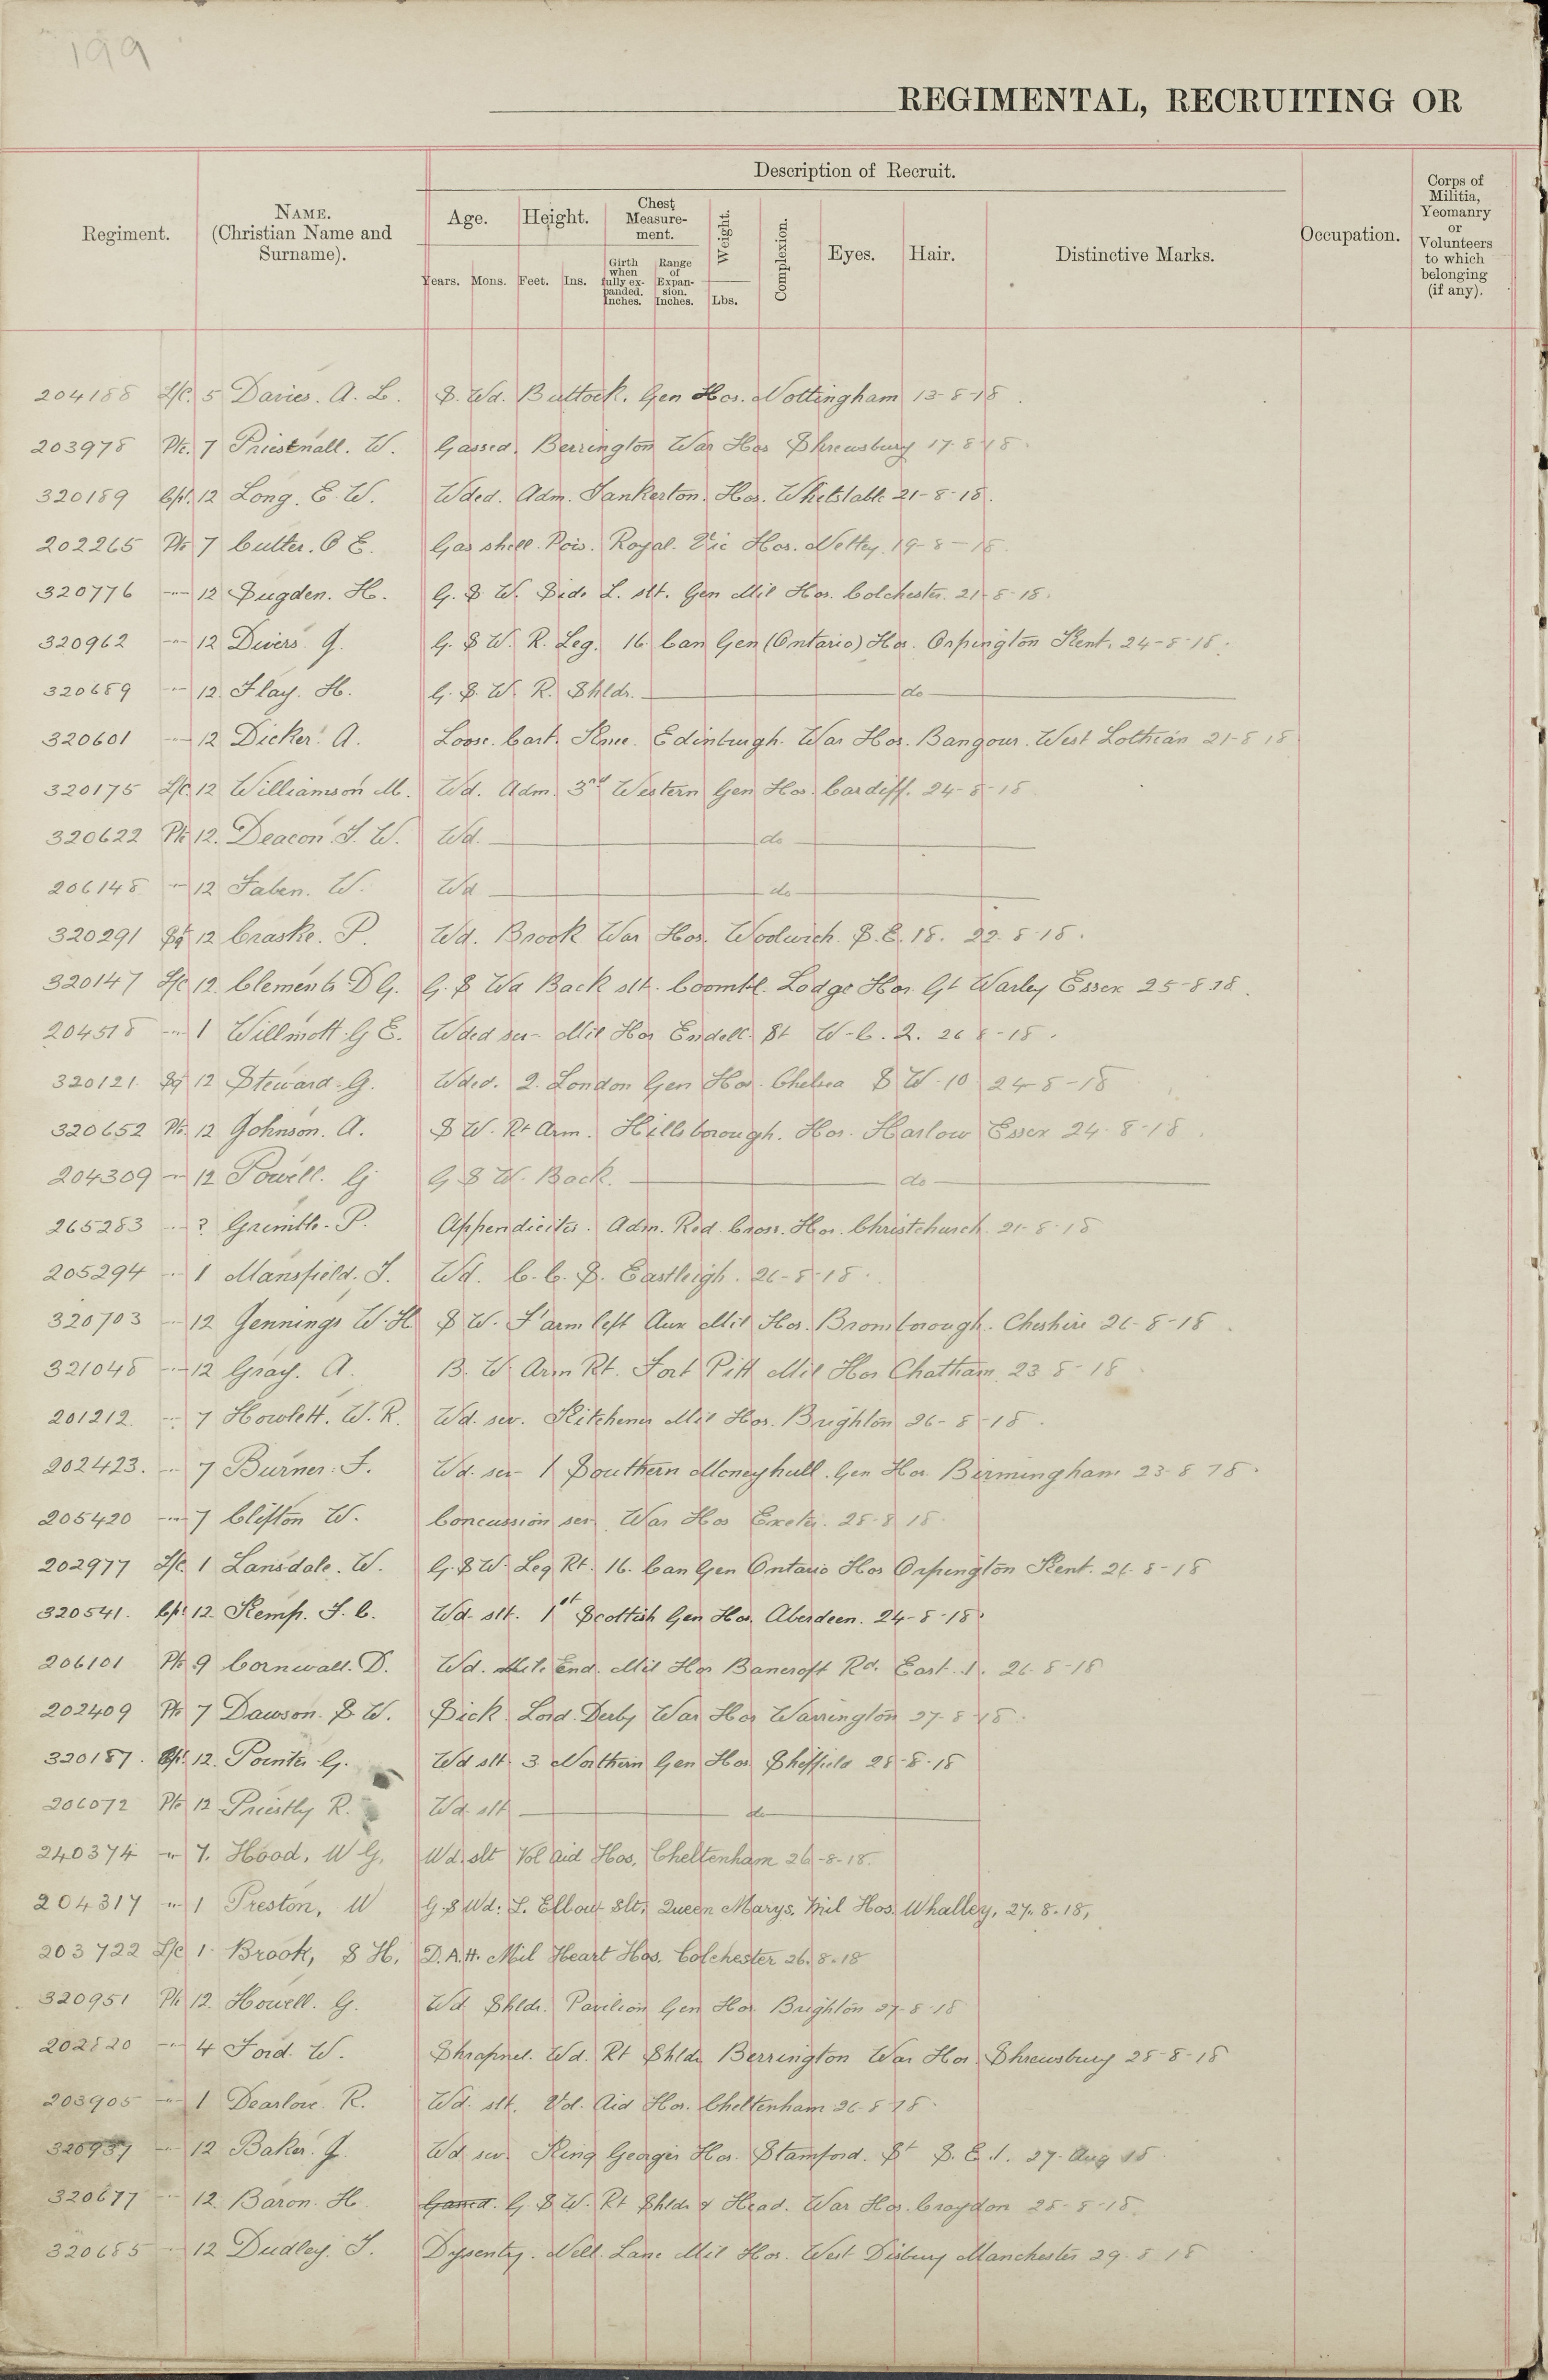 199
REGIMENTAL, RECRUITING OR
Regiment.
NAME.
(Christian Name and
Surname).
Description of Recruit.
Age.
Height.
Chest
Measure-
ment.
Weight.
Complexion.
Eyes.
Hair.
Distinctive Marks.
Occupation.
Corps of
Militia,
Yeomanry
or
Volunteers
to which
belonging
(if any).
Years.
Mons.
Feet.
Ins.
Girth
when
fully ex-
panded.
Inches.
Range
of
Expan-
sion.
Inches.
Lbs.
204188 L/C. 5 Davies. A. L. S. Wd. Buttock. Gen Hos. Nottingham 13-8-18.
203978 Pte. 7 Priestnall. W. Gassed. Berrington War Hos Shrewsbury 17-8-18.
320189 Cpl. 12 Long. E. W. Wded. Adm. Tankerton. Hos. Whitstable 21-8-18.
202265 Pte 7 Cutter. O E. Gas shell. Pois. Royal. Vic Hos. Netley. 19-8-18.
320776 -"- 12 Sugden. H. G. S. W. Side L. slt. Gen Mil Hos. Colchester. 21-8-18.
320962 -"- 12 Divers J. G. S W. R. Leg. 16 Can Gen (Ontario) Hos. Orpington Kent. 24-8-18.
320689 -"- 12. Flay. H. G. S. W. R. Shldr. do
320601 -"- 12 Dicker. A. Loose. Cart. Knee. Edinburgh. War Hos. Bangour. West Lothian 21-8-18
320175 L/C. 12 Williamson M. Wd. Adm. 3rd Western Gen Hos. Cardiff. 24-8-18
320622 Pte 12. Deacon. J. W. Wd. do
206148 -"- 12 Faben. W. Wd do
320291 Sgt 12 Craske. P. Wd. Brook War Hos. Woolwich. S.E. 18. 22-8-18.
320147 L/C 12. Clements D G. G. S Wd Back slt. Coombe. Lodge Hos. Gt Warley Essex 25-8-18.
204518 -"- 1 Willmott G E. Wded sev- Mil Hos Endell. St W-C. 2. 26-8-18.
320121 Sg 12 Steward. G. Wded. 2. London Gen Hos. Chelsea S W. 10 24-8-18
320652 Pte. 12 Johnson. A. S W. Rt Arm. Hillsborough. Hos. Harlow Essex 24-8-18.
204309 -"- 12 Powell. G G S W. Back. do
265283 -"- ? Grimble. P. Appendicitis. Adm. Red. Cross. Hos. Christchurch. 21-8-18
205294 -"- 1 Mansfield. J. Wd. C. C. S. Eastleigh. 26-8-18.
320703 -"- 12 Jennings W. H S W. F'arm left Aux Mil Hos. Bromborough. Cheshire 26-8-18.
321048 -"- 12 Gray. A. B. W. Arm Rt. Fort Pitt Mil Hos Chatham. 23-8-18
201212. -"- 7 Howlett. W. R. Wd. sev. Kitchener Mil Hos. Brighton 26-8-18.
202423. -"- 7 Burner. F. Wd. sev- 1 Southern Moneyhull. Gen Hos. Birmingham 23-8-18.
205420 -"- 7 Clifton W. Concussion sev War Hos Exeter. 28-8-18.
202977 L/C. 1 Lansdale. W. G. S W. Leg Rt. 16. Can Gen Ontario Hos Orpington Kent. 26-8-18
320541. Cpl 12. Kemp. F. C. Wd slt. 1st Scottish Gen Hos. Aberdeen. 24-8-18.
206101 Pte 9 Cornwall. D. Wd. Mile End. Mil Hos Bancroft Rd. East. 1. 26-8-18
202409 Pte 7 Dawson. S. W. Sick. Lord. Derby War Hos Warrington 27-8-18.
320187. Cpl. 12. Pointer G. Wd slt 3 Northern Gen Hos Sheffield 28-8-18
206072 Pte 12 Priestly R. Wd. slt do
240374 -"- 7. Hood. W G. Wd. slt Vol Aid Hos, Cheltenham 26-8-18.
204317 -"- 1 Preston, W G.S Wd: L. Elbow Slt, Queen Marys. Mil Hos. Whalley, 27.8.18,
203722 L/C 1. Brook, S H, D.A.H. Mil Heart Hos. Colchester 26.8.18
320951 Pte 12. Howell. G. Wd Shldr. Pavilion Gen Hos Brighton 27-8-18
202820 -"- 4 Ford. W. Shrapnel. Wd. Rt Shldr Berrington War Hos Shrewsbury 28-8-18
203905 -"- 1 Dearlove R. Wd. slt. Vol. Aid Hos. Cheltenham 26-8-18.
320937 -"- 12 Baker. J. Wd sev. King Georges Hos. Stamford. St S. E. 1. 27. Aug 18
320677 -"- 12. Baron. H. Gassed. G. S W. Rt Shldr & Head. War Hos. Croydon 28-8-18.
320685 -"- 12 Dudley. J. Dysentry. Nell Lane Mil Hos. West Disbury Manchester 29-8-18